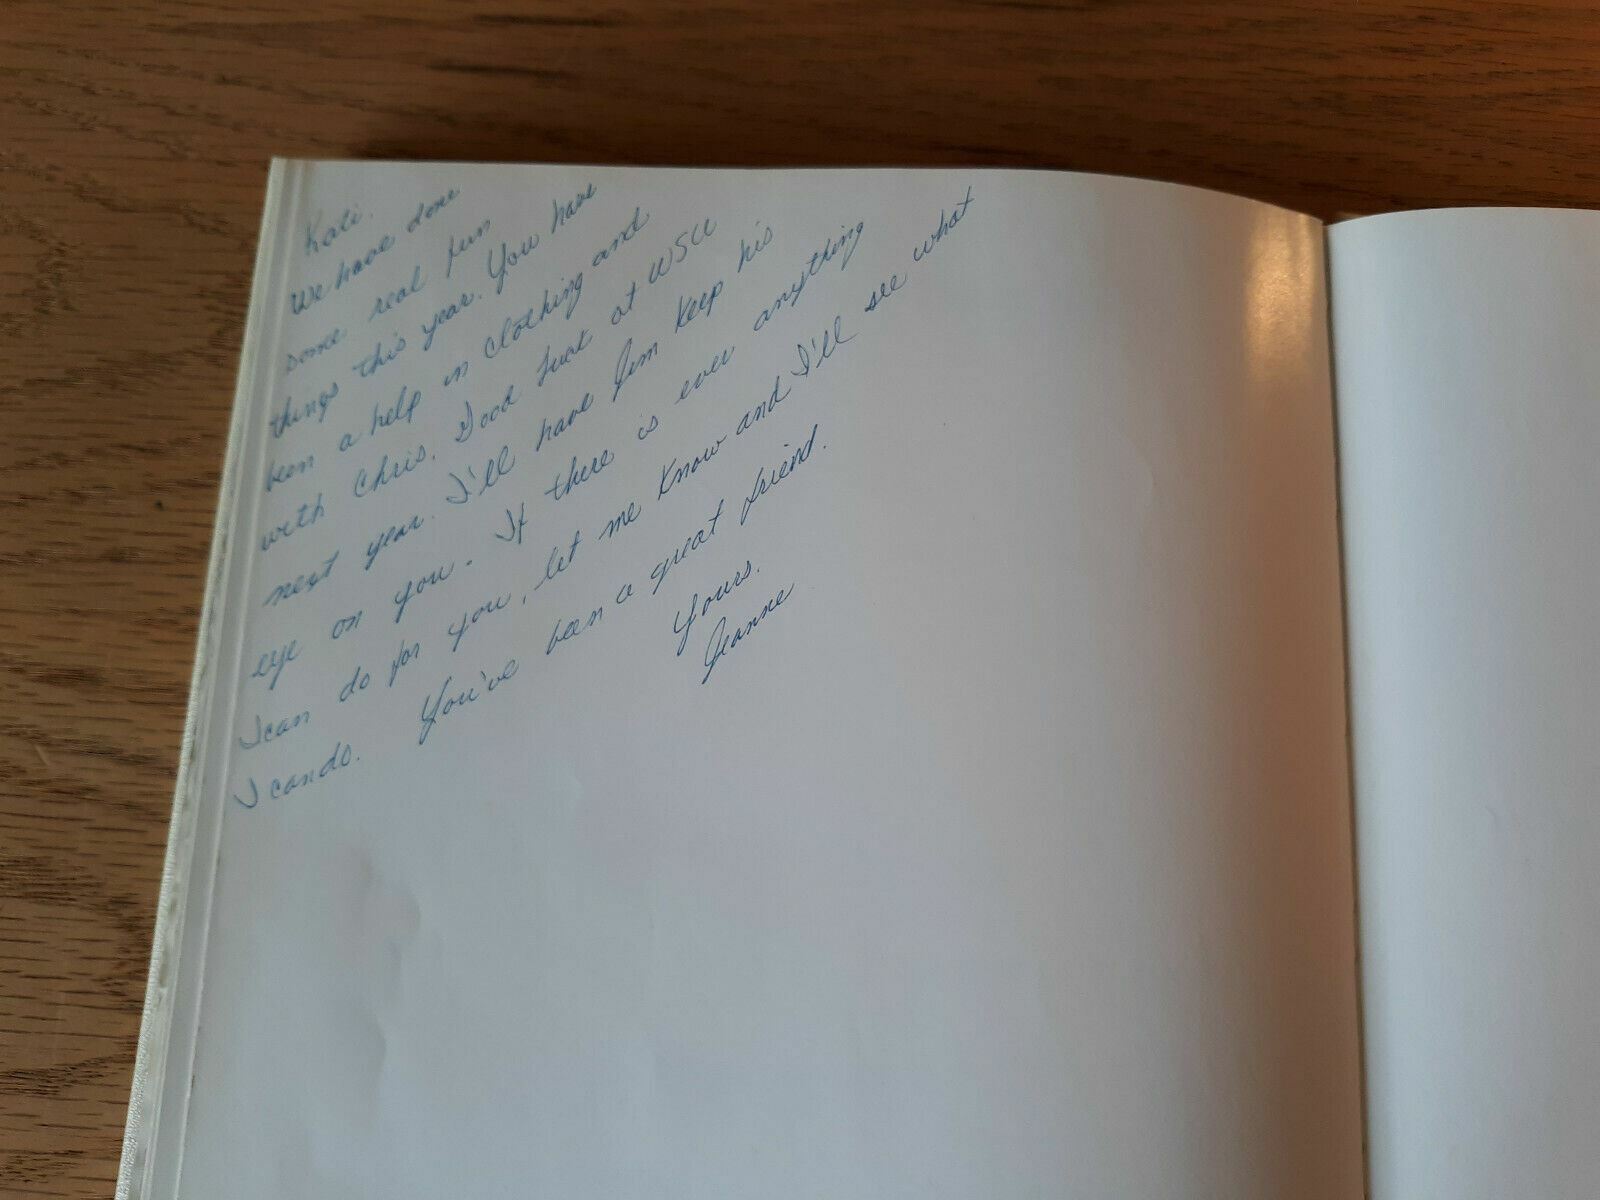 Kati.
We have done
some real fun
things this year. You have
been a help in clothing and
with Chris. Good luck at WSU
next year. I'll have Jim keep his
eye on you. If there is ever anything
I can do for you, let me know and I'll see what
I can do. You've been a great friend.
Yours.
Jeanne